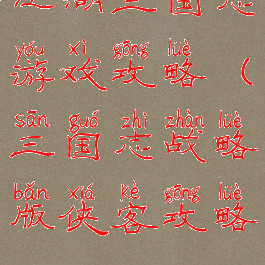 江湖三国志
yóu xì gōng lüè
游戏攻略（
sān guó zhì zhàn lüè
三国志战略
bǎn xiá kè gōng lüè
版侠客攻略